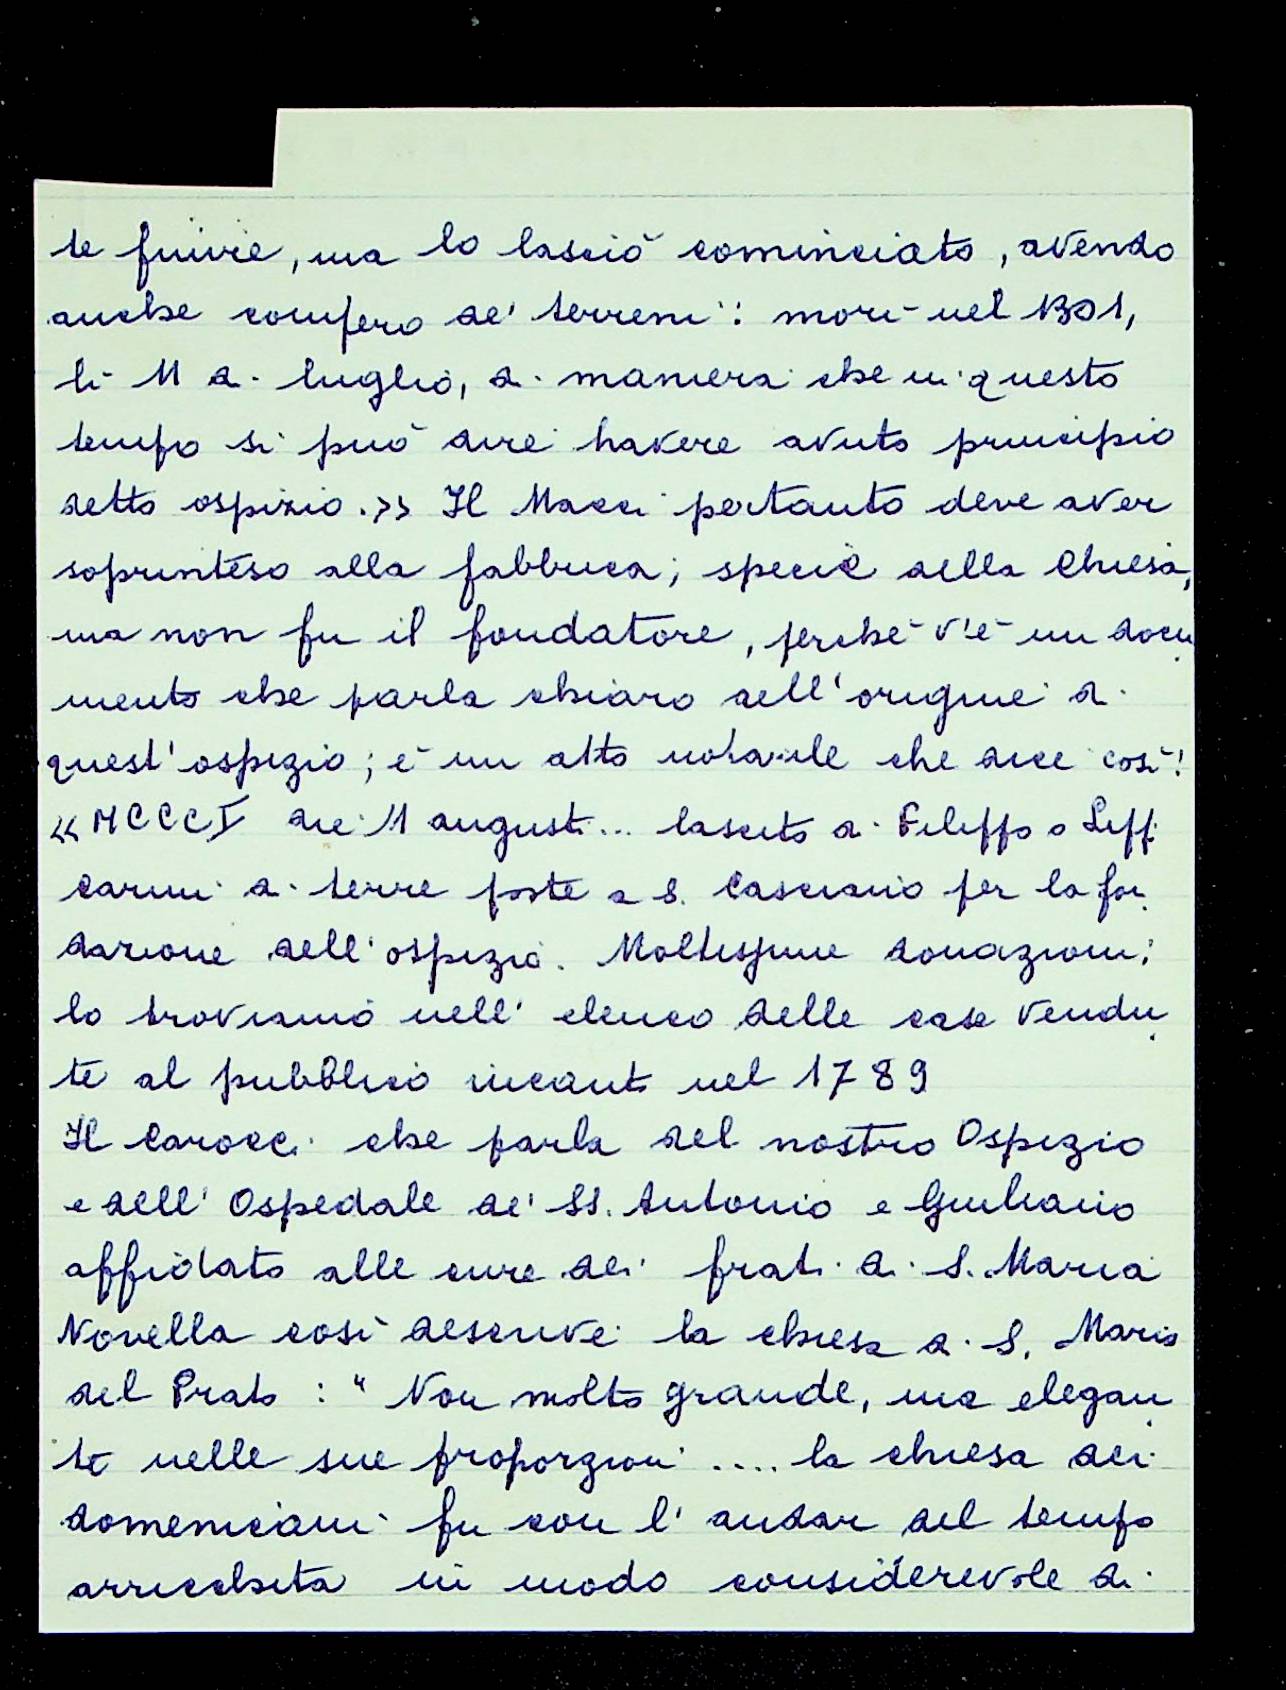 te finire, ma lo lasciò cominciato, avendo
anche compero de' terreni: morì nel 1301,
lì 11 di luglio, di maniera che in questo
tempo si può dire havere avuto principio
detto ospizio.>> Il Macci pertanto deve aver
soprinteso alla fabbrica; specie della Chiesa,
ma non fu il fondatore, perché v'è un docu
mento che parla chiaro dell'origine di
quest'ospizio; è un atto notarile che dice così:
<< MCCCI die 11 augusti... lascito di Filippo o Lipp
carini di terre poste a S. Casciano per la fon
dazione dell'ospizio. Moltissime donazioni;
lo troviamo nell' elenco delle case vendu
te al pubblico incanto nel 1789
Il Carocci che parla del nostro Ospizio
e dell' Ospedale de' SS. Antonio e Giuliano
affidato alle cure dei frati di S. Maria
Novella così descrive la chiesa di S. Maria
del Prato : " Non molto grande, ma elegan
te nelle sue proporzioni .... la chiesa dei
domenicani fu con l' andar del tempo
arricchita in modo considerevole di